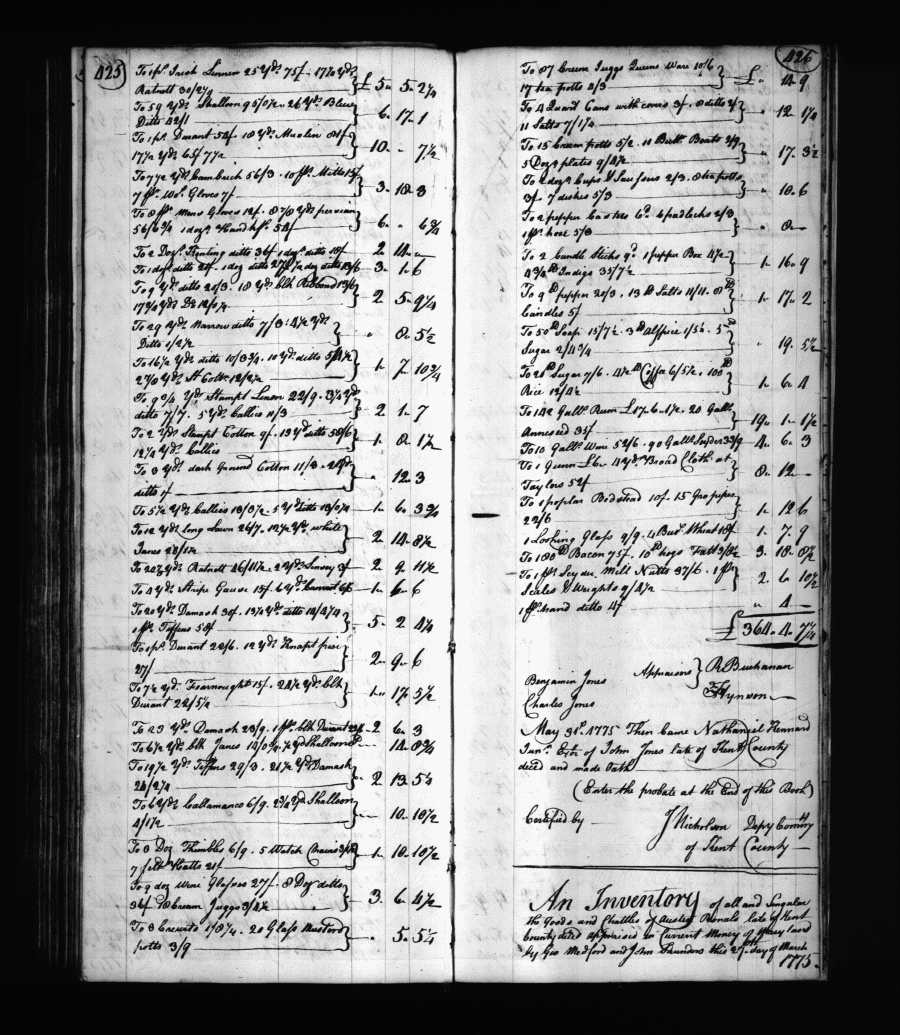 425
To 1 ps. Irish Linnen 25 Yds. 75/- 17¼ Yds.
Ratnett 30/2¼ £ 5 " 5 - 2¼
To 59 Yds. Shalloon 95/0½ - 26 Yds. Blue
Ditto 42/1 6 - 17 - 1
To 1 ps. Durant 54/- 18 Yds. Muslin 81/-
17½ Yds. 65/7½ 10 - - 7½
To 77½ Yds. Cambrick 56/3 - 10 ps. Mitts 15/-
7 ps. Wo. Gloves 7/- 3 - 18 - 3
To 8 ps. Mens Gloves 12/- Yds. persian
56/6¾ 1 dozn. Handkfs. 54/- 6 - " 6¾
To 2 Dozn. Kenting ditto 36/- 1 dozn. ditto 18/- 2 - 14 - "
To 1 dozn. ditto 1 doz ditto 27/- ½ doz ditto 13/6 3 - 1 - 6
To 9 Yds. ditto 20/3 - 18 Yds. blk Ribband 13/6
17¾ Yds. Do. 2 5 - 9¼
To 29 Yds. Narrow ditto 7/3 - 4½ Yds.
Ditto 1/2½ " 8 - 5½
To 16½ Yds. ditto 10/3¾ - 10 Yds. ditto 5/4½
Yds. St. Cotton 12/2½ 1 - 7 - 10¾
To 9¾ Yds. Stampt Linen 22/9 - 3¼ Yds.
ditto 7/7 - 5 Yds. Callico 11/3 2 - 1 - 7
To 2 Yds. Stampt Cotton 9/- 13 Yds. ditto 58/6
12¼ Yds. Callico 1 - 8 - 1½
To 3 Yds. dark Ground Cotton 11/3 -
ditto 1/- - 12 3
To 5½ Yds. Callico 13/3½ - 5 Yds. ditto 13/0¼ 1 - 6 - 3¾
To 12 Yds. long Lawn 26/7 - 12½ Yds. white
Janes 28/1½ 2 14 - 8½
To Yds. Ratnett 46/11½ - 2 Yds. Linsey 3/- 2 9 11½
To 4 Yds. Stripe Gause 15/- 6 Yds. 1 - 6 - 6
To 20 Yds. Damask 30/- 13¼ Yds. ditto 14/4¼
1 ps. Taffens 58/- 5 - 2 4¼
To 1 ps. Durant 22/6 - 12 Yds. Knapt frise
27/ 2 - 9 - 6
To 7½ Yds. Fearnought 15/- 24½ Yds. blk
Durant 22/5½ 1 " 17 - 5½
To 23 Yds. Damask 23/9 - 1 ps. blk Durant 22/6 2 6 - 3
To 6½ Yds. blk Janes 14/0¾ - ½ Yd Shalloon " - 14 - 8¾
To 19½ Yds. Taffens 29/3 - 21½ Yds. Damask
24/2¼ 2 13 5¼
To 6 Yds. Callamanco 6/9 - 2¾ Yds. Shalloon
4/1½ " - 10 - 10½
To 3 Doz. Thimbles 6/9 - 5 Watch Chains
7 felt Hatts 21/- 1 - 18 - 10½
To 9 doz Wine Glasses 27/- 8 Doz. ditto
36/- 18 Cream Juggs 3/4½ 3 - 6 - 4½
To 3 Cruits 1/8¼ - 20 Glass Mustard
potts 3/9 " 5 - 5¼
426
To 87 Cream Juggs Queens Ware 10/6
17 tea potts 4/3 £ " 14 - 9
To 4 Quart Cans with covers 3/- 8 ditto 2/-
11 Salts 7/1¼ - 12 - 1¼
To 15 Cream potts 5/2 - 11 Butr. Boats 2/9
5 Dozn. plates 9/4½ " 17 - 3½
To 2 dozn. Cups & Saucers 2/3 - 8 tea potts
3/- 7 dishes 5/3 " 10 - 6
To 2 pepper Castors 6d. 6 padlocks 2/3
1 ps. hose 5/3 " 8 -
To 2 Candle Sticks 9d. 1 pepper Box 4½
lb Indigo 35/7½ 1 - 16 - 9
To 9 lb pepper 20/3 - 13 lb Salts 11/11 - 8 lb
Candles 5/ 1 - 17 - 2
To 50 lb Soap 15/7½ - 3 lb Allspice - 5 lb
Sugar 2/4¾ " 19 - 5½
To Sugar 7/6 - 4½ lb Coffee 6/5½ - 100 lb
Rice 12/4½ 1 - 6 - 4
To 142 Galls. Rum £17 - 6 - 1½ - 20 Galls
Anneseed 35/- 19 " 1 - 1½
To 10 Galls. Wine 52/6 - 90 Galls. Syder 33/9 4 - 6 - 3
To 1 Gunn £6 - 4 Yds. Broad Cloth at
Taylors 52/- 8 - 12 -
To 1 poplar Bedstead 10/- 15 Gro pipes
22/6 1 - 12 6
1 Looking Glass 9/9 - 4 Bus. Wheat 18/- 1 - 7 - 9
To 180 lb Bacon 75/- 10 lb hogs Fatt 3/8½ 3 - 18 - 8½
To 1 ps. Scyder Mill Nutts 37/6 - 1 ps.
Scales & Weights 9/4½ 2 - 6 - 10½
1 ps. hand ditto 4/- " 4 -
£ 364 - 4 - 7¼
Benjamin Jones Appraisors R. Buchanan
Charles Jones F. Hynson
May 31st. 1775 Then Came Nathaniel Kennard
Junr. Exor. of John Jones late of Kent County
decd. and made Oath
(Enter the probate at the End of this Book)
Certified by J Nicholson Depy Comry
of Kent County
An Inventory of all and Singular
the Goods and Chattles of late of Kent
County decd. Appraised in Current Money of Maryland
by Geo Medford and John Saunders this 27th day of March
1775.